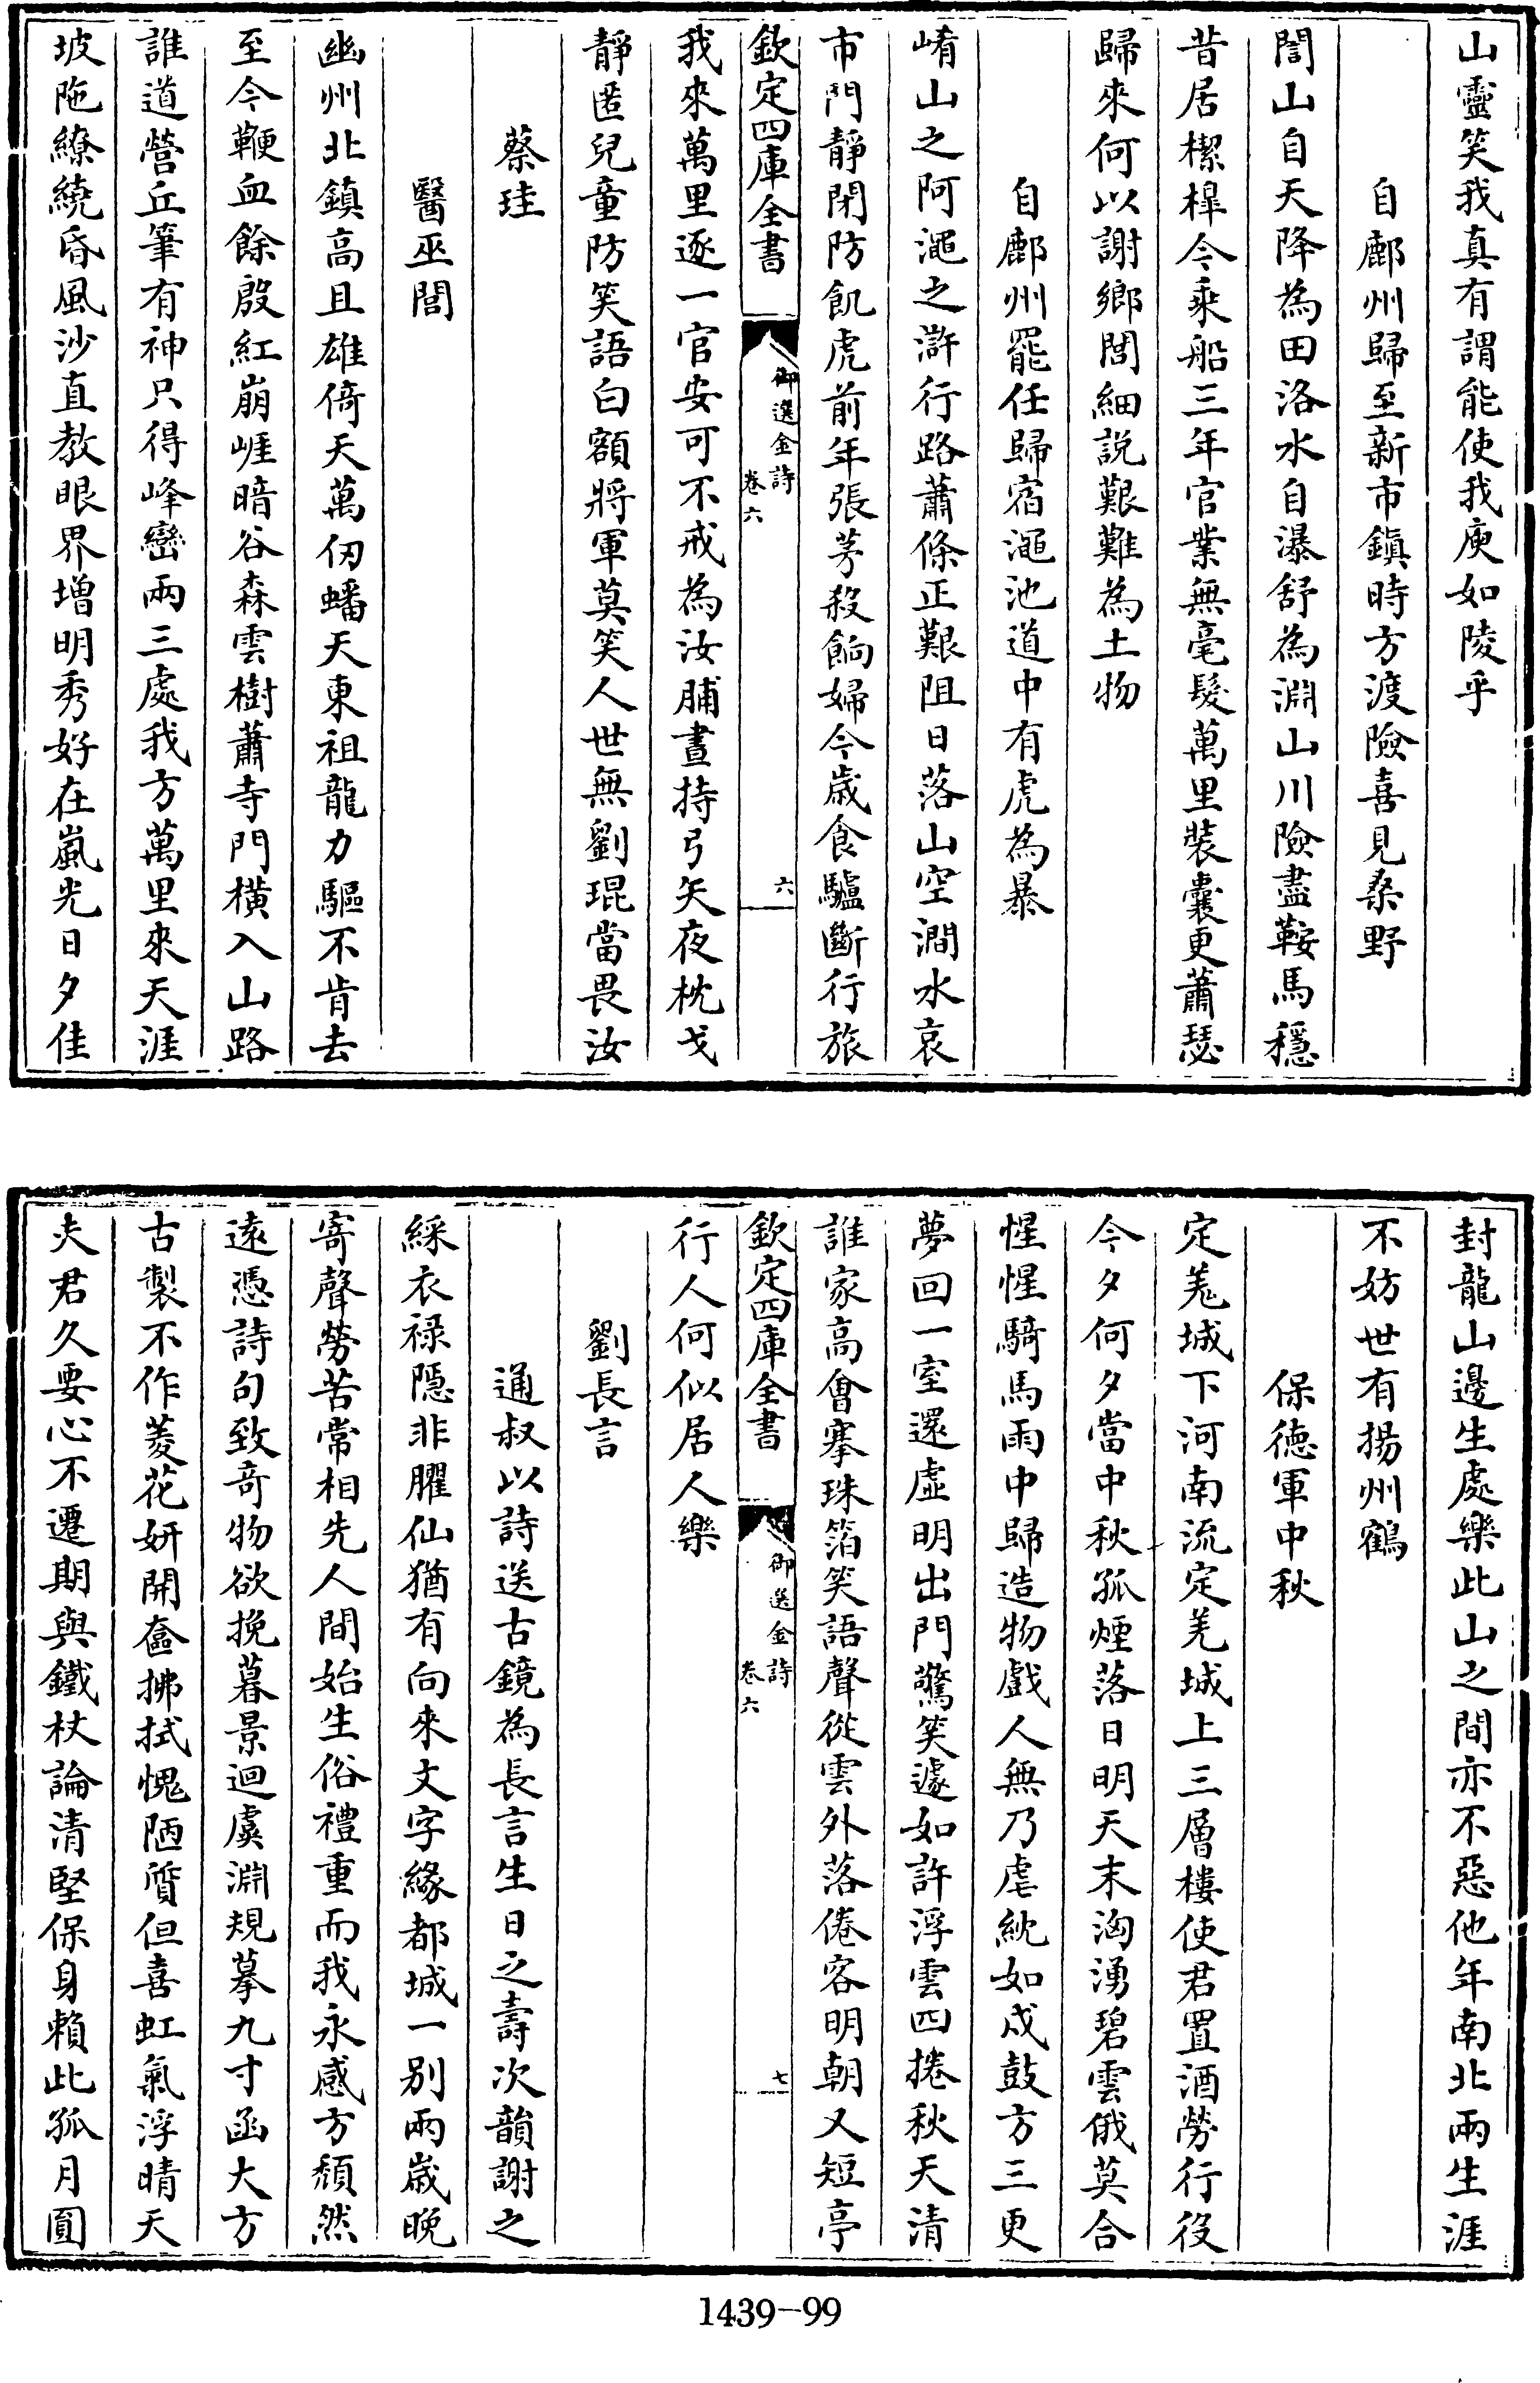 山靈笑我真有謂能使我庾如陵乎
自鄜州歸至新市鎮時方渡險喜見桑野
誾山自天降為田洛水自瀑舒為淵山川險盡鞍馬穩
昔居櫟橰今乘船三年官業無毫髮萬里裝囊更蕭瑟
歸來何以謝鄉閭細說艱難為土物
自鄜州罷任歸宿澠池道中有虎為暴
崤山之阿澠之滸行路蕭條正艱阻日落山空澗水哀
市門靜閉防飢虎前年張茅殺餉婦今歲食驢斷行旅
欽定四庫全書
御選金詩
卷六
六
我來萬里逐一官安可不戒為汝脯晝持弓矢夜枕戈
靜匿兒童防笑語白額將軍莫笑人世無劉琨當畏汝
蔡珪
醫巫閭
幽州北鎮高且雄倚天萬仞蟠天東祖龍力驅不肯去
至今鞭血餘殷紅崩崖暗谷森雲樹蕭寺門橫入山路
誰道營丘筆有神只得峰巒兩三處我方萬里來天涯
坡陁繚繞昏風沙直教眼界增明秀好在嵐光日夕佳
封龍山邊生處樂此山之間亦不惡他年南北兩生涯
不妨世有揚州鶴
保德軍中秋
定羗城下河南流定羌城上三層樓使君置酒勞行役
今夕何夕當中秋孤煙落日明天末洶湧碧雲俄莫合
惺惺騎馬雨中歸造物戲人無乃虐紞如戍鼓方三更
夢回一室還虛明出門驚笑遽如許浮雲四捲秋天清
誰家高會搴珠箔笑語聲從雲外落倦客明朝又短亭
欽定四庫全書
御選金詩
卷六
七
行人何似居人樂
劉長言
通叔以詩送古鏡為長言生日之壽次韻謝之
綵衣祿隱非臞仙猶有向來文字緣都城一別兩歲晚
寄聲勞苦常相先人間始生俗禮重而我永感方頹然
遠憑詩句致奇物欲挽暮景迴虞淵規摹九寸函大方
古製不作菱花妍開奩拂拭愧陋質但喜虹氣浮晴天
夫君久要心不遷期與鐵杖論清堅保身賴此孤月圓
1439-99